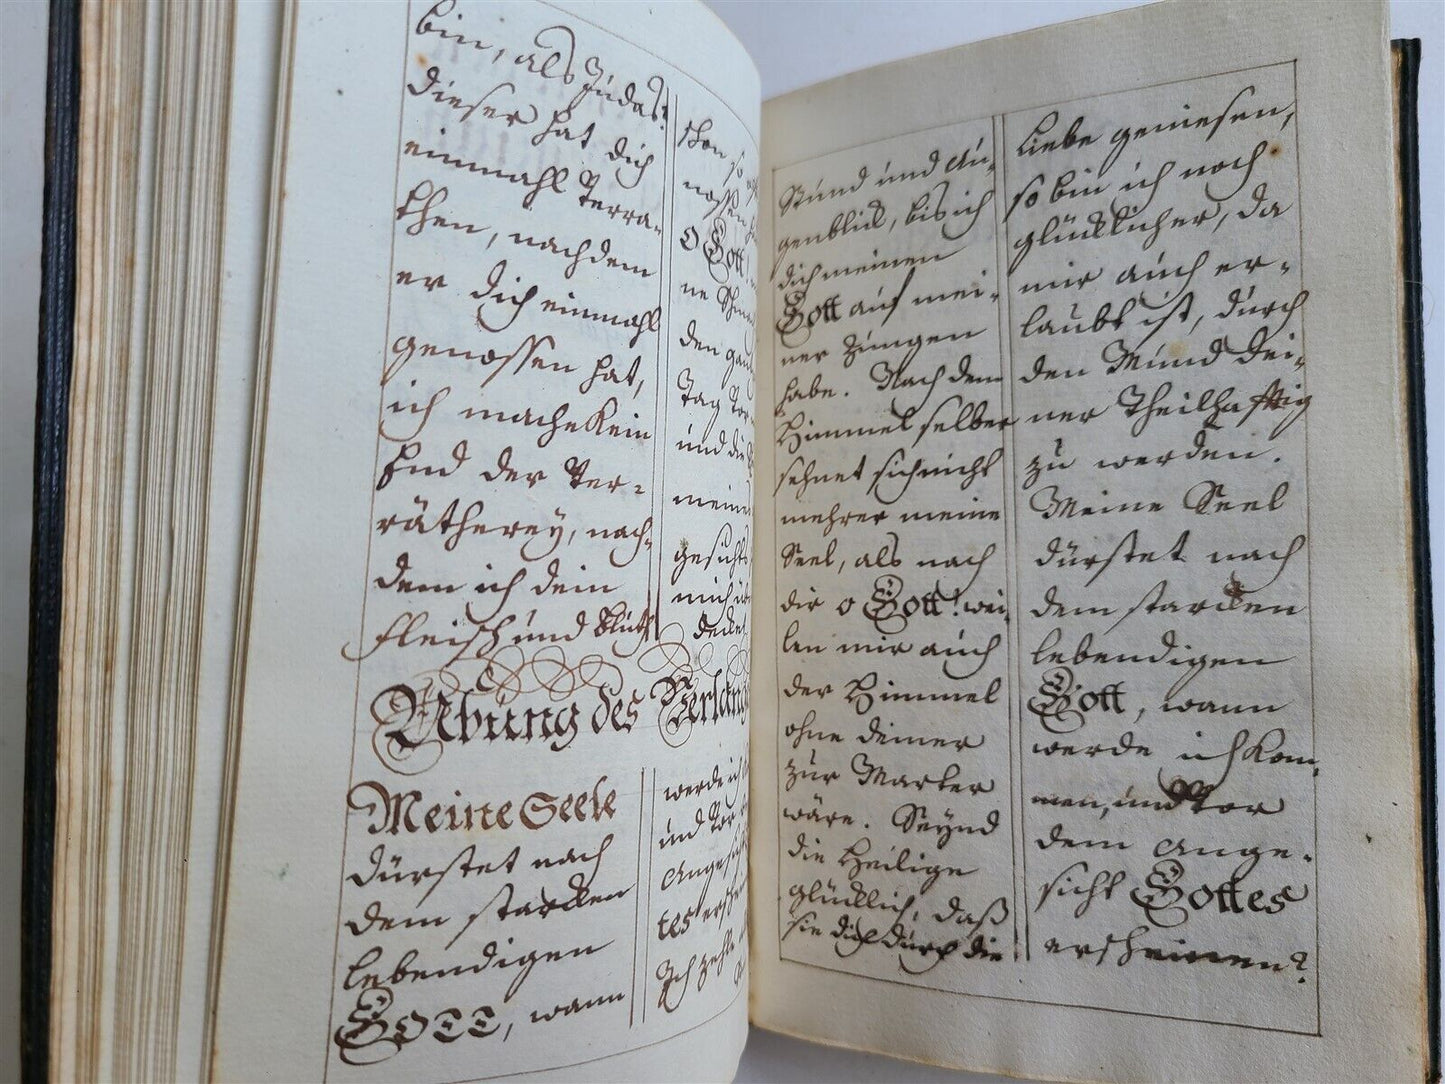 bin, als Judas?
dieser hat dich
einmahl verra-
then, nachdem
er dich einmahl
genossen hat,
ich mache kein
End der Ver-
rätherey, nach-
dem ich dein
Fleisch und Bluth
schon so
nossen
O Gott!
ne
den gan
Tag vor
und die
meine
gesichts
mich
decket
Übung des Verlang
Meine Seele
dürstet nach
dem starcken
lebendigen
GOTT, wann
werde ich
und vor
Angesicht
tes ersche
Ich zehle
Stund und Au-
genblick, bis ich
dich meinen
Gott auf mei-
ner Zungen
habe. Nach dem
Himmel selber
sehnet sich nicht
mehrer meine
Seel, als nach
dir o Gott! wei-
len mir auch
der Himmel
ohne deiner
zur Marter
wäre. Seynd
die Heilige
glücklich, daß
sie dich durch die
Liebe geniesen,
so bin ich noch
glücklicher, da
mir auch er-
laubt ist, durch
den Mund dei-
ner theilhafftig
zu werden.
Meine Seel
dürstet nach
dem starcken
lebendigen
Gott, wann
werde ich kom-
men, und vor
dem Ange-
sicht Gottes
erscheinen?